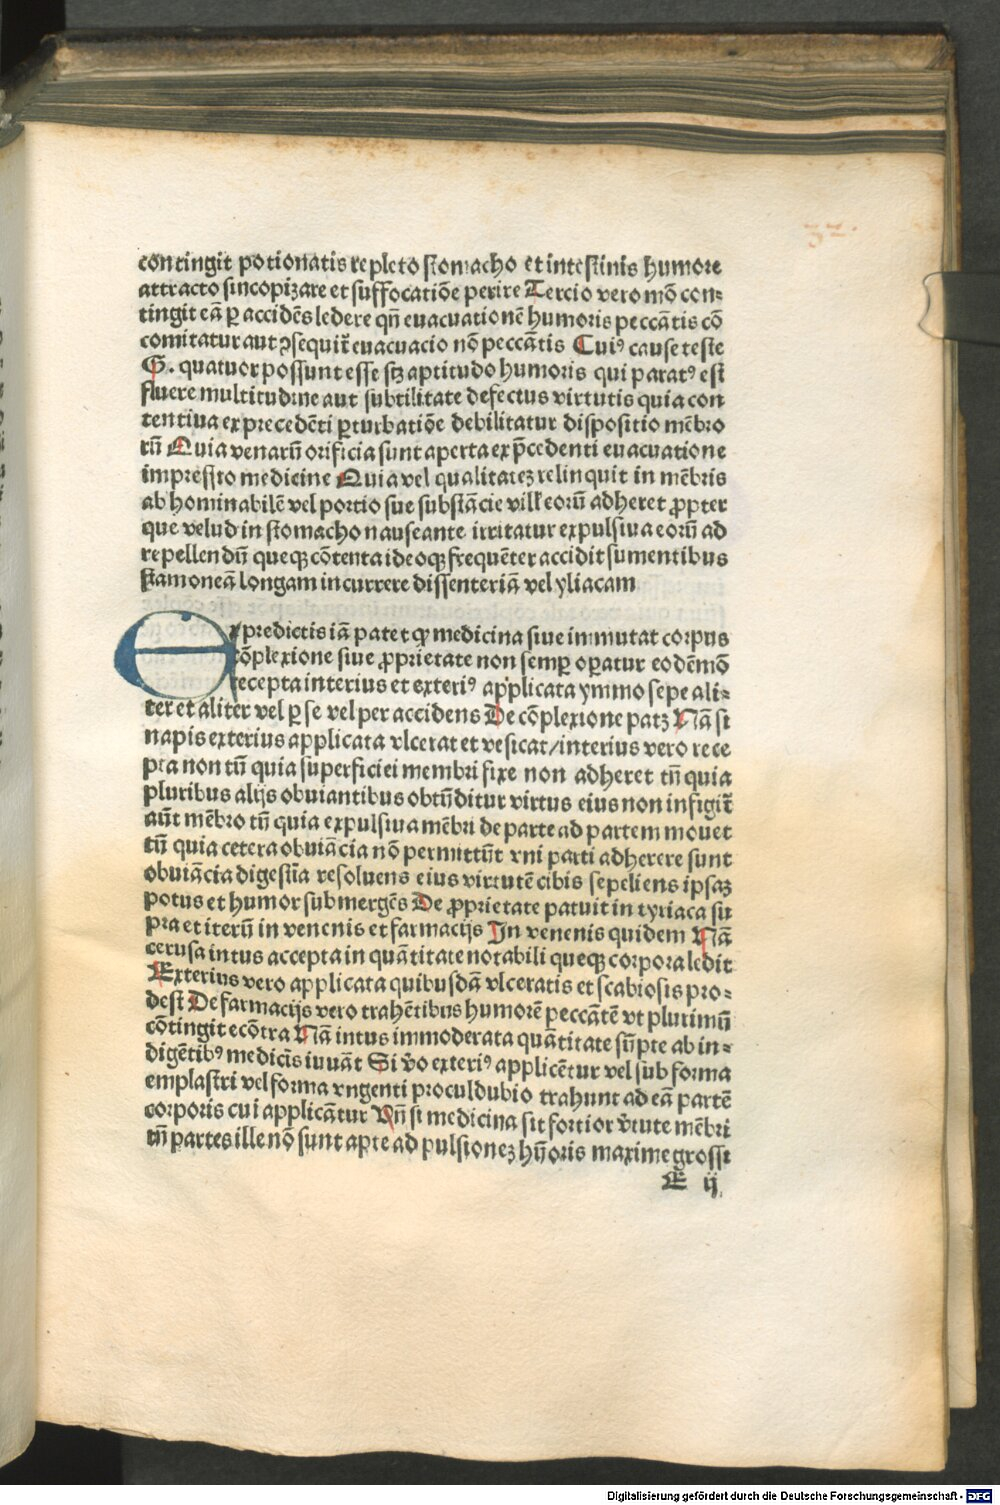 32.
contingit potionatis repleto stomacho et intestinis humore
attracto sincopizare et suffocatiõe perire Tercio vero mõ con⸗
tingit eã ꝑ accidẽs ledere qñ euacuationẽ humoris peccãtis cõ
comitatur aut ꝯsequit᷑ euacuacio nõ peccãtis Cuiꝰ cause teste
G. quatuor possunt esse scꝫ aptitudo humoris qui paratꝰ est
fluere multitudine aut subtilitate defectus virtutis quia con
tentiua ex precedẽti ꝑturbatiõe debilitatur dispositio mẽbro
rũ Quia venarũ orificia sunt aperta ex p̃cedenti euacuatione
impressio medicine Quia vel qualitateꝫ relinquit in mẽbris
ab hominabilẽ vel portio sue substãcie villꝭ eorũ adheret ꝓpter
que velud in stomacho nauseante irritatur expulsiua eorũ ad
repellendũ queqꝫ cõtenta ideoqꝫ frequẽter accidit sumentibus
stamoneã longam incurrere dissenteriã vel yliacam
Ex predictis iã patet ꝙ medicina siue inmutat corpus
cõplexione siue ꝓprietate non semꝑ oꝑatur eodẽmõ
recepta interius et exteriꝰ applicata ymmo sepe ali⸗
ter et aliter vel ꝑ se vel per accidens De cõplexione patꝫ Nã si
napis exterius applicata vlcerat et vesicat/interius vero rece
pta non tũ quia superficiei membri fixe non adheret tñ quia
pluribus alijs obuiantibus obtũditur virtus eius non infigit᷑
aũt mẽbro tũ quia expulsiua mẽbri de parte ad partem mouet
tũ quia cetera obuiãcia nõ permittũt vni parti adherere sunt
obuiãcia digestĩa resoluens eius virtutẽ cibis sepeliens ipsaꝫ
potus et humor submergẽs De ꝓprietate patuit in tyriaca su
pra et iterũ in venenis et farmacijs In venenis quidem Nã
cerusa intus accepta in quãtitate notabili queqꝫ corpora ledit
Exterius vero applicata quibusdã vlceratis et scabiosis pro⸗
dest De farmacijs vero trahẽtibus humorẽ peccãtẽ vt plurimũ
cõtingit ecõtra Nã intus immoderata quãtitate sũpte ab in⸗
digẽtibꝰ medicĩs iuuãt Si v̉o exteriꝰ applicẽtur vel sub forma
emplastri vel forma vngenti proculdubio trahunt ad eã partẽ
corporis cui applicãtur Vñ si medicina sit fortior v̉tute mẽbri
tñ partes ille nõ sunt apte ad pulsioneꝫ hũoris maxime grossi
E ij
Digitalisierung gefördert durch die Deutsche Forschungsgemeinschaft - DFG